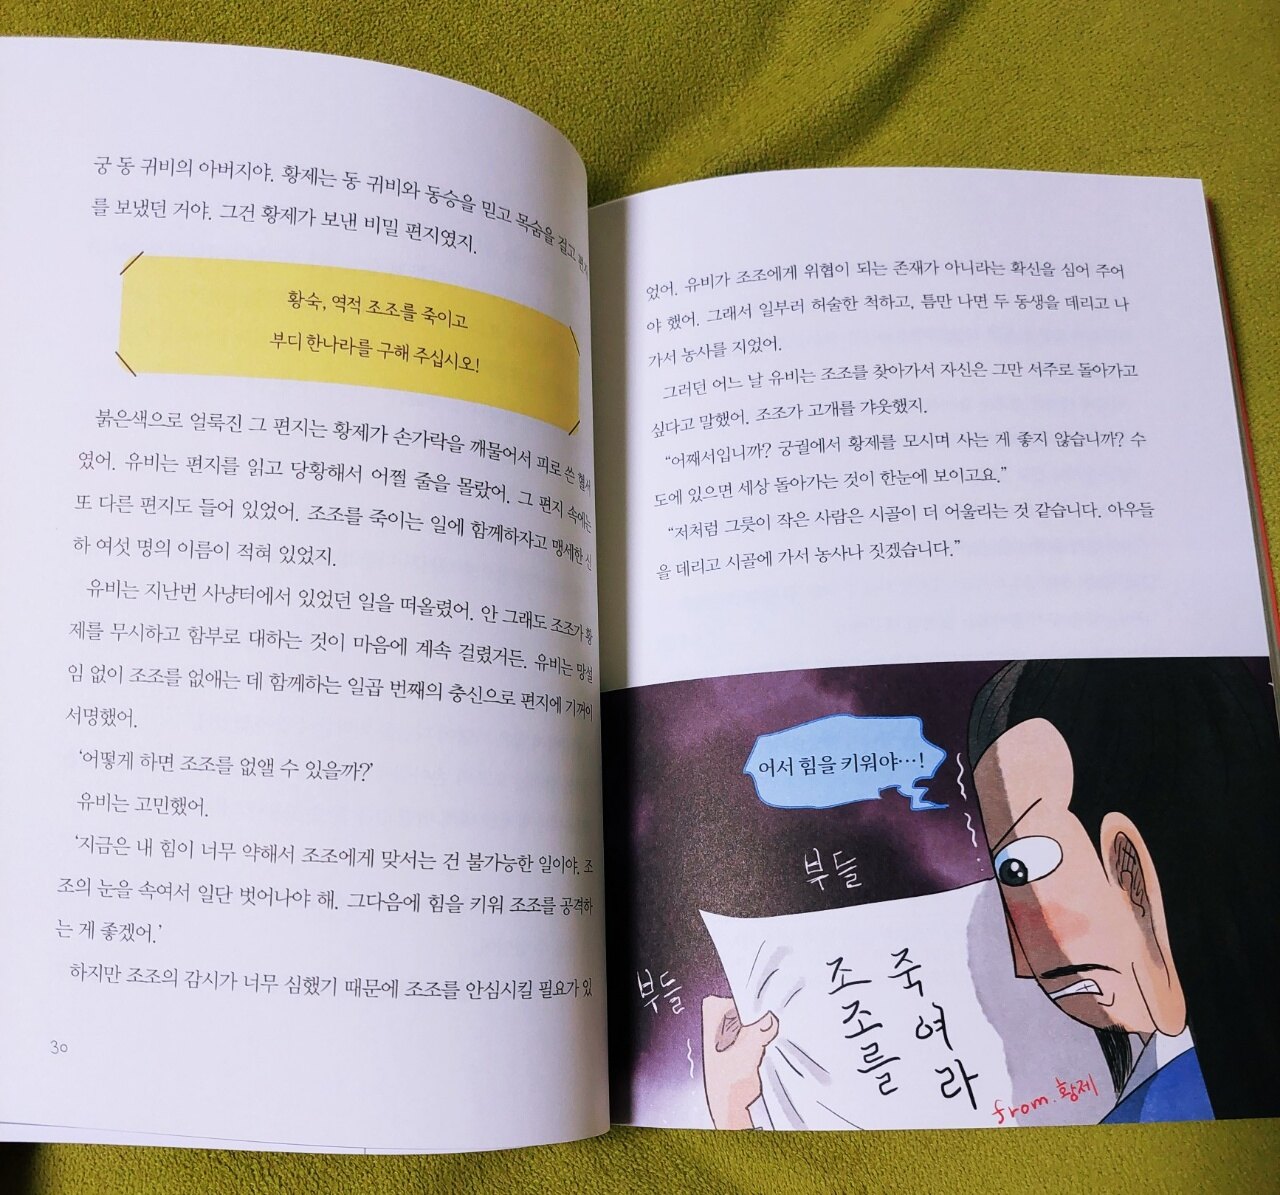 궁 동 귀비의 아버지야. 황제는 동 귀비와 동승을 믿고 목숨을 걸고 편지
를 보냈던 거야. 그건 황제가 보낸 비밀 편지였지.
황숙, 역적 조조를 죽이고
부디 한나라를 구해 주십시오!
붉은색으로 얼룩진 그 편지는 황제가 손가락을 깨물어서 피로 쓴 혈서
였어. 유비는 편지를 읽고 당황해서 어쩔 줄을 몰랐어. 그 편지 속에는
또 다른 편지도 들어 있었어. 조조를 죽이는 일에 함께하자고 맹세한 신
하 여섯 명의 이름이 적혀 있었지.
유비는 지난번 사냥터에서 있었던 일을 떠올렸어. 안 그래도 조조가 황
제를 무시하고 함부로 대하는 것이 마음에 계속 걸렸거든. 유비는 망설
임 없이 조조를 없애는 데 함께하는 일곱 번째의 충신으로 편지에 기꺼이
서명했어.
‘어떻게 하면 조조를 없앨 수 있을까?’
유비는 고민했어.
‘지금은 내 힘이 너무 약해서 조조에게 맞서는 건 불가능한 일이야. 조
조의 눈을 속여서 일단 벗어나야 해. 그다음에 힘을 키워 조조를 공격하
는 게 좋겠어.’
하지만 조조의 감시가 너무 심했기 때문에 조조를 안심시킬 필요가 있
30
었어. 유비가 조조에게 위협이 되는 존재가 아니라는 확신을 심어 주어
야 했어. 그래서 일부러 허술한 척하고, 틈만 나면 두 동생을 데리고 나
가서 농사를 지었어.
그러던 어느 날 유비는 조조를 찾아가서 자신은 그만 서주로 돌아가고
싶다고 말했어. 조조가 고개를 갸웃했지.
“어째서입니까? 궁궐에서 황제를 모시며 사는 게 좋지 않습니까? 수
도에 있으면 세상 돌아가는 것이 한눈에 보이고요.”
“저처럼 그릇이 작은 사람은 시골이 더 어울리는 것 같습니다. 아우들
을 데리고 시골에 가서 농사나 짓겠습니다.”
어서 힘을 키워야…!
부들
부들
조조를
죽여라
from. 황제